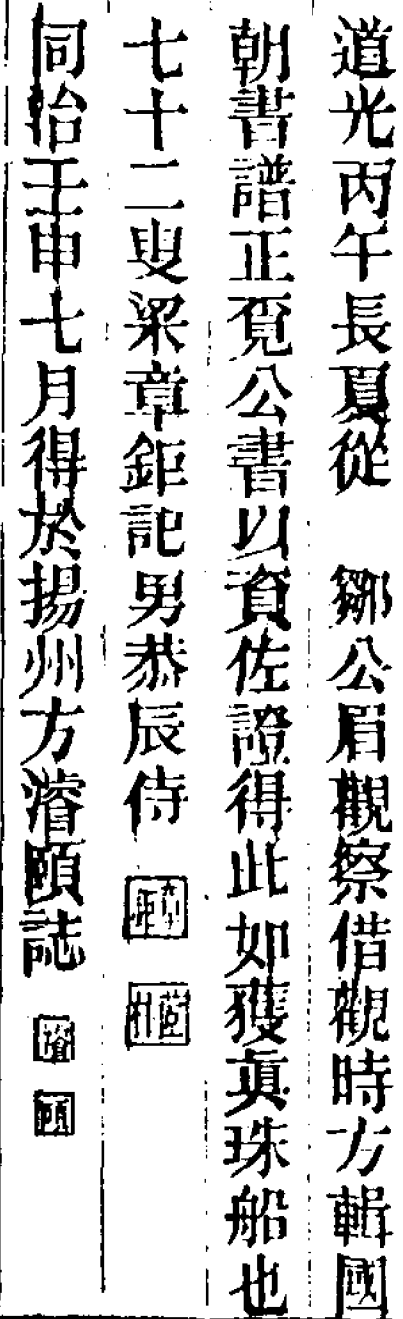 道光丙午長夏從　鄒公眉觀察借觀時方輯國
朝書譜正覓公書以資佐證得此如獲真珠船也
七十二叟梁章鉅記男恭辰侍
章鉅
茝林
同治壬申七月得於揚州方濬頤誌
濬
頤